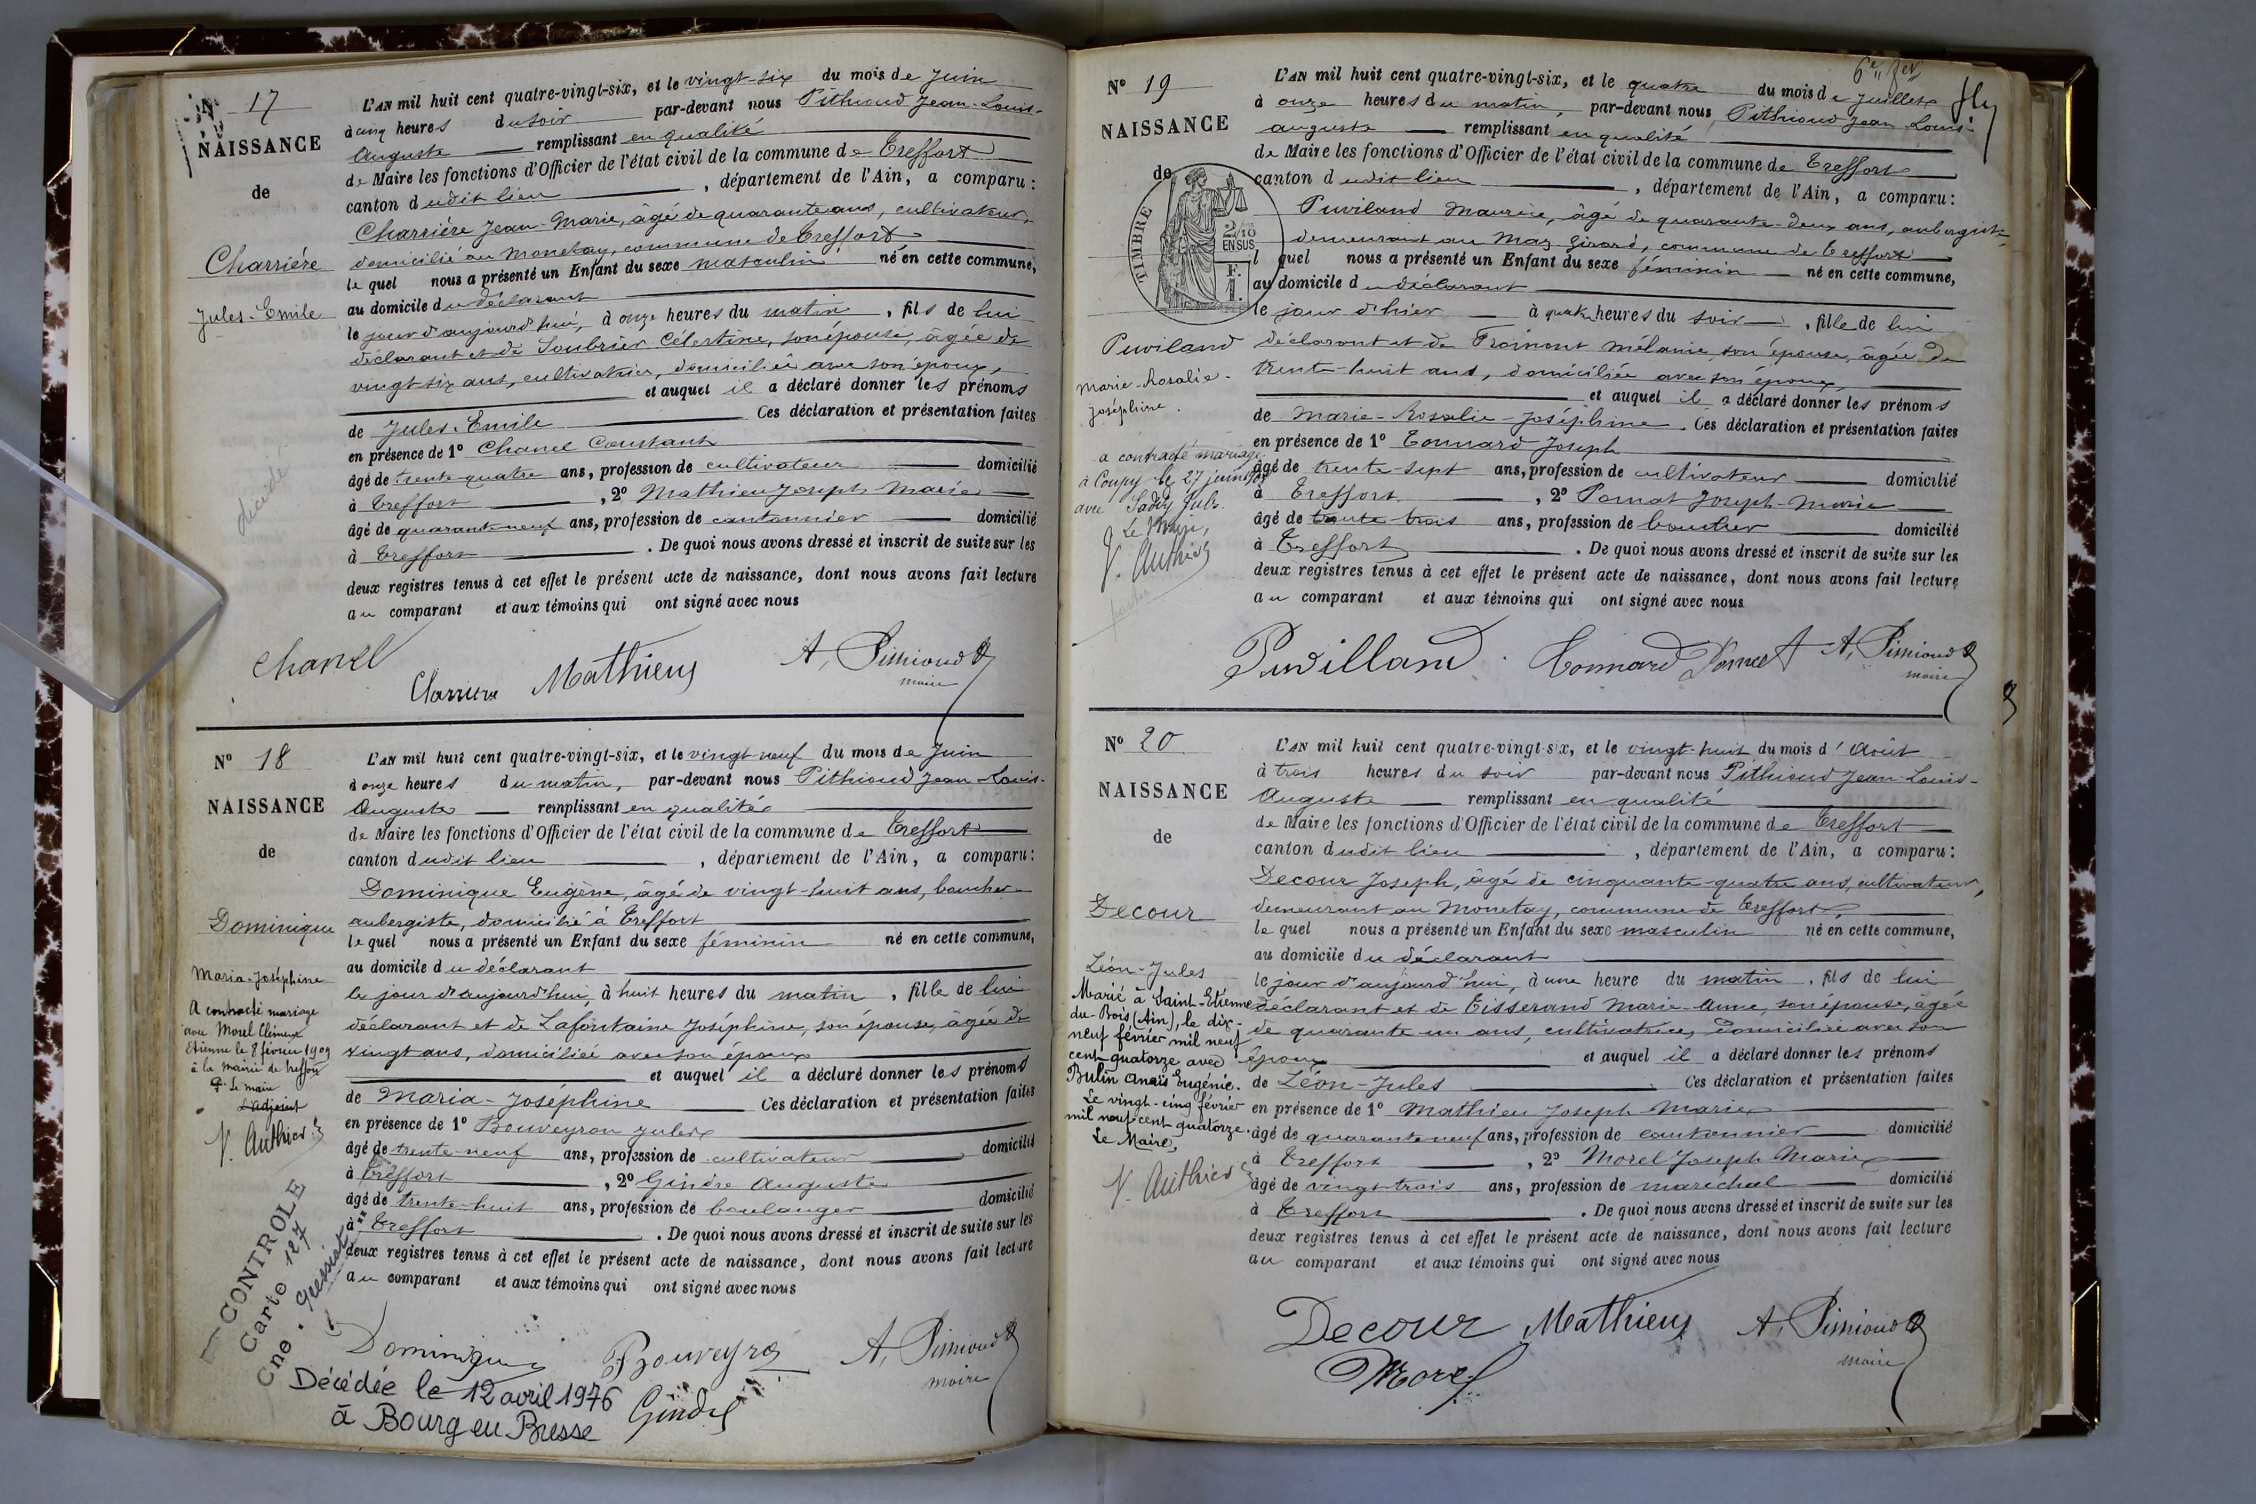 N° 17
NAISSANCE
de
Charrière
Jules-Emile
décédé
L'AN mil huit cent quatre-vingt-six, et le vingt-six du mois de Juin
à cinq heures du soir par-devant nous Pithioud Jean-Louis-
Auguste remplissant en qualité
de Maire les fonctions d'Officier de l'état civil de la commune de Treffort
canton dudit lieu , département de l'Ain, a comparu :
Charrière Jean-Marie, âgé de quarante ans, cultivateur,
domicilié au Monetay, commune de Treffort
lequel nous a présenté un Enfant du sexe masculin né en cette commune,
au domicile du déclarant
le jour d'aujourd'hui, à onze heures du matin , fils de lui
déclarant et de Soubrier Célestine, son épouse, âgée de
vingt-six ans, cultivatrice, domiciliée avec son époux,
et auquel il a déclaré donner les prénoms
de Jules-Emile Ces déclaration et présentation faites
en présence de 1° Chanel Constant
âgé de trente-quatre ans, profession de cultivateur domicilié
à Treffort , 2° Mathieu Joseph Marie
âgé de quarante-neuf ans, profession de cantonnier domicilié
à Treffort . De quoi nous avons dressé et inscrit de suite sur les
deux registres tenus à cet effet le présent acte de naissance, dont nous avons fait lecture
au comparant et aux témoins qui ont signé avec nous
Chanel Charriere Mathieu A. Pithioud
maire
N° 18
NAISSANCE
de
Dominique
Maria-Joséphine
A contracté mariage
avec Morel Clément
Etienne le 8 février 1909
à la mairie de Treffort
Le maire
L'adjoint
V. Authier
CONTROLE
Carte 127
Cne.
L'AN mil huit cent quatre-vingt-six, et le vingt-neuf du mois de Juin
à onze heures du matin, par-devant nous Pithioud Jean-Louis-
Auguste remplissant en qualité
de Maire les fonctions d'Officier de l'état civil de la commune de Treffort
canton dudit lieu , département de l'Ain, a comparu :
Dominique Eugène, âgé de vingt-huit ans, boucher
aubergiste, domicilié à Treffort
lequel nous a présenté un Enfant du sexe féminin né en cette commune,
au domicile du déclarant
le jour d'aujourd'hui, à huit heures du matin , fille de lui
déclarant et de Lafontaine Joséphine, son épouse, âgée de
vingt ans, domiciliée avec son époux
et auquel il a déclaré donner les prénoms
de Maria-Joséphine Ces déclaration et présentation faites
en présence de 1° Bouveyron Jules
âgé de trente-neuf ans, profession de cultivateur domicilié
à Treffort , 2° Gindre Auguste
âgé de trente-huit ans, profession de boulanger domicilié
à Treffort . De quoi nous avons dressé et inscrit de suite sur les
deux registres tenus à cet effet le présent acte de naissance, dont nous avons fait lecture
au comparant et aux témoins qui ont signé avec nous
Dominique Bouveyron A. Pithioud
maire
Gindre
Décédée le 12 avril 1976
à Bourg en Bresse
6e fev
N° 19
NAISSANCE
de
TIMBRE
2/10
EN SUS
F.
1.
Puviland
Marie-Rosalie-
Joséphine.
a contracté mariage
à Coupy le 27 juin
avec
Le Maire,
V. Authier
L'AN mil huit cent quatre-vingt-six, et le quatre du mois de Juillet
à onze heures du matin par-devant nous Pithioud Jean Louis-
auguste remplissant en qualité
de Maire les fonctions d'Officier de l'état civil de la commune de Treffort
canton dudit lieu , département de l'Ain, a comparu :
Puviland Maurice, âgé de quarante-deux ans, aubergiste,
demeurant au Maz Girard, commune de Treffort
lequel nous a présenté un Enfant du sexe féminin né en cette commune,
au domicile du déclarant
le jour d'hier à quatre heures du soir , fille de lui
déclarant et de Froimont Mélanie son épouse, âgée de
trente-huit ans, domiciliée avec son époux,
et auquel il a déclaré donner les prénoms
de Marie-Rosalie-Joséphine . Ces déclaration et présentation faites
en présence de 1° Tonnard Joseph
âgé de trente-sept ans, profession de cultivateur domicilié
à Treffort , 2° Pornat Joseph-Marie
âgé de trente trois ans, profession de boucher domicilié
à Treffort . De quoi nous avons dressé et inscrit de suite sur les
deux registres tenus à cet effet le présent acte de naissance, dont nous avons fait lecture
au comparant et aux témoins qui ont signé avec nous
Puvilland Tonnard Pornat A. Pithioud
maire
N° 20
NAISSANCE
de
Decour
Léon-Jules
Marié à Saint-Etienne
du-Bois (Ain), le dix-
neuf février mil neuf
cent quatorze avec
Bulin Anaïs Eugénie.
Le vingt-cinq février
mil neuf cent quatorze.
Le Maire,
V. Authier
L'AN mil huit cent quatre-vingt-six, et le vingt-huit du mois d'Août
à trois heures du soir par-devant nous Pithioud Jean-Louis-
Auguste remplissant en qualité
de Maire les fonctions d'Officier de l'état civil de la commune de Treffort
canton dudit lieu , département de l'Ain, a comparu :
Decour Joseph, âgé de cinquante-quatre ans, cultivateur,
demeurant au Monetay, commune de Treffort,
lequel nous a présenté un Enfant du sexe masculin né en cette commune,
au domicile du déclarant
le jour d'aujourd'hui, à une heure du matin , fils de lui
déclarant et de Tisserand Marie-Anne, son épouse, âgée
de quarante-un ans, cultivatrice, domiciliée avec son
époux et auquel il a déclaré donner les prénoms
de Léon-Jules . Ces déclaration et présentation faites
en présence de 1° Mathieu Joseph Marie
âgé de quarante-neuf ans, profession de cantonnier domicilié
à Treffort , 2° Morel Joseph Marie
âgé de vingt-trois ans, profession de maréchal domicilié
à Treffort . De quoi nous avons dressé et inscrit de suite sur les
deux registres tenus à cet effet le présent acte de naissance, dont nous avons fait lecture
au comparant et aux témoins qui ont signé avec nous
Decour Mathieu A. Pithioud
maire
Morel